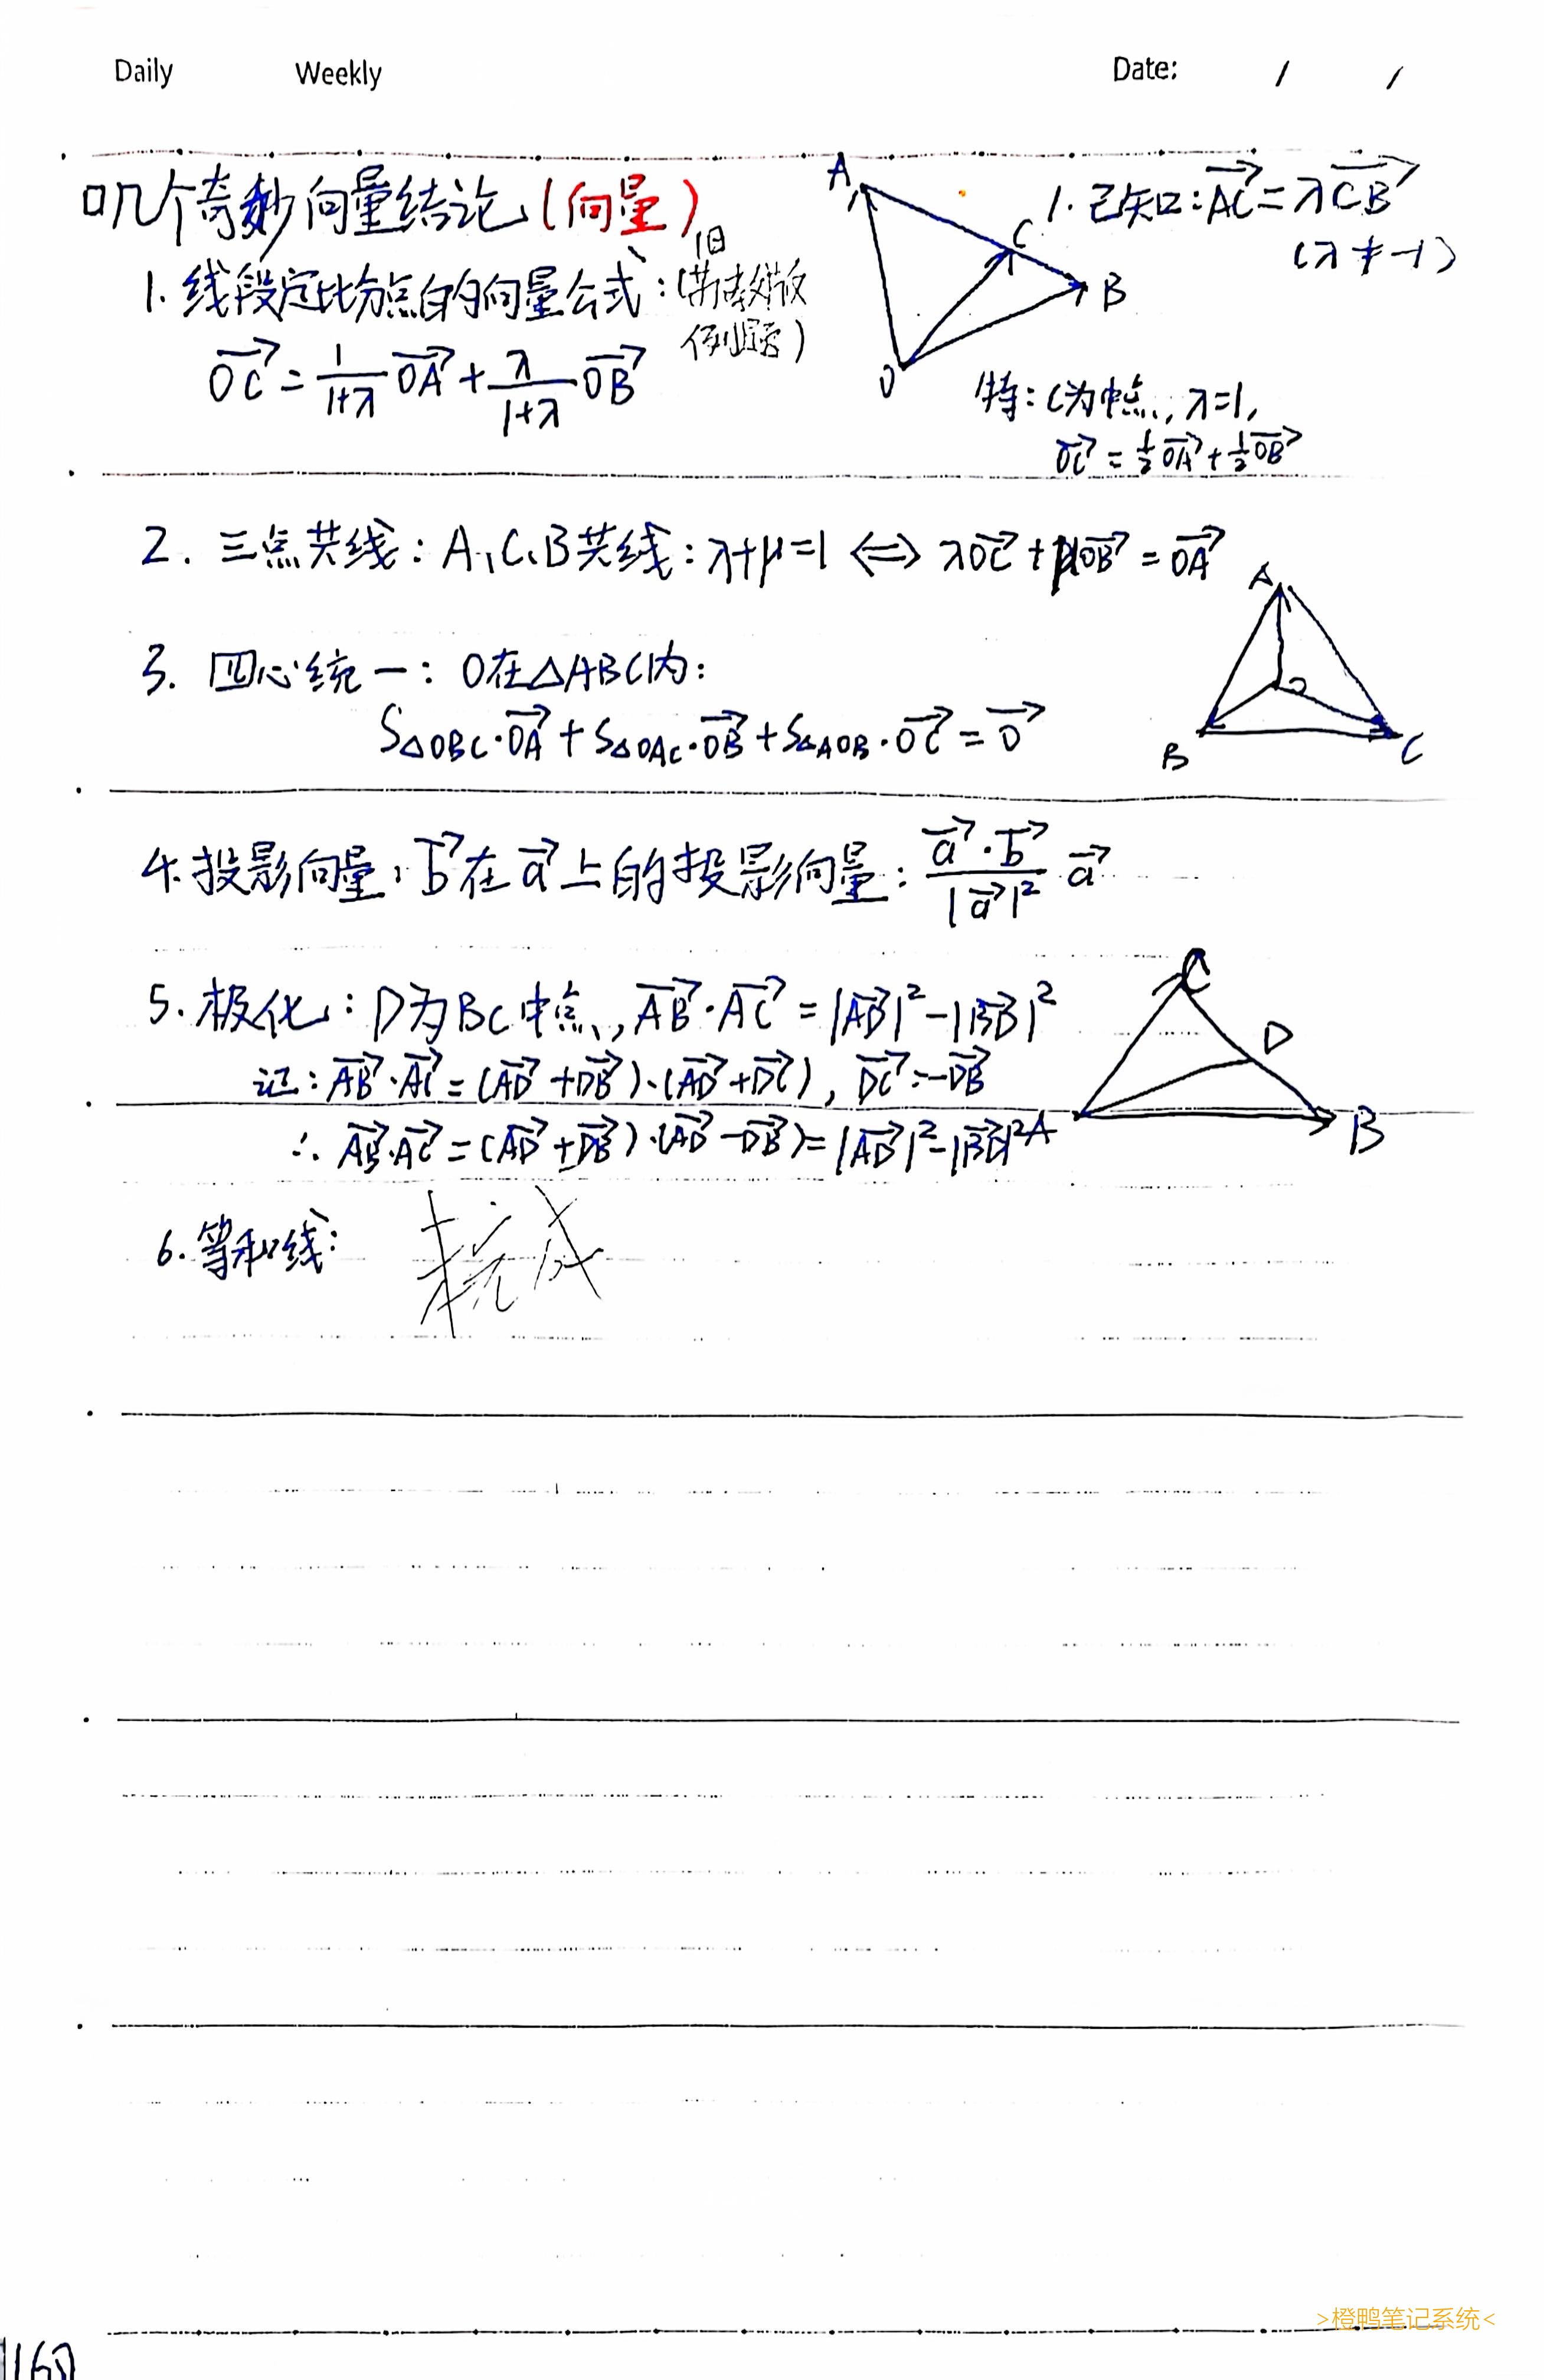 Daily Weekly Date: / /
几个奇妙向量结论(向量)
1. 线段定比分点的向量公式:(旧教材版
例题)
OC⃗ = 1/(1+λ) OA⃗ + λ/(1+λ) OB⃗
A C B O
1. 已知: AC⃗ = λCB⃗
(λ ≠ -1)
特: C为中点, λ=1,
OC⃗ = ½OA⃗ + ½OB⃗
2. 三点共线: A、C、B共线: λ+μ=1 ⟺ λOC⃗ + μOB⃗ = OA⃗
3. 四心统一: O在△ABC内:
S△OBC·OA⃗ + S△OAC·OB⃗ + S△AOB·OC⃗ = 0⃗
A O B C
4. 投影向量, b⃗在a⃗上的投影向量: (a⃗·b⃗)/|a⃗|² a⃗
5. 极化: D为BC中点, AB⃗·AC⃗ = |AD⃗|²-|BD⃗|²
记: AB⃗·AC⃗ = (AD⃗+DB⃗)·(AD⃗+DC⃗), DC⃗=-DB⃗
∴ AB⃗·AC⃗ = (AD⃗+DB⃗)·(AD⃗-DB⃗) = |AD⃗|²-|BD⃗|²
C D A B
6. 等和线: 未完成
>橙鸭笔记系统<